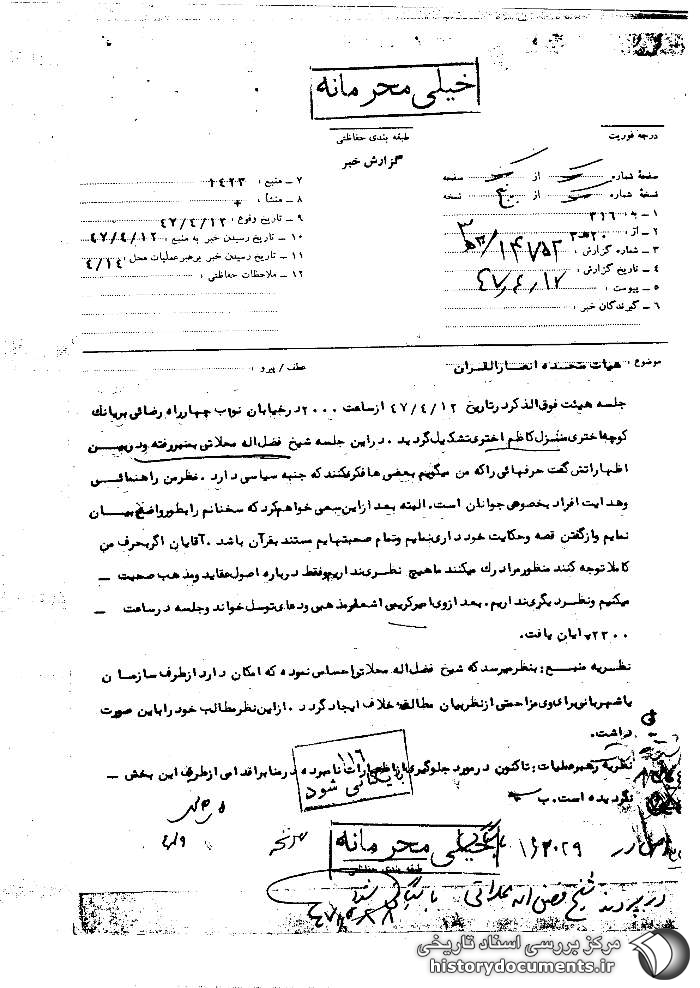 خیلی محرمانه
طبقه بندی حفاظتی
درجه فوریت
گزارش خبر
صفحهٔ شماره از صفحه
نسخهٔ شماره از نسخه
۱ ـ به : ۳۱۶
۲ ـ از : ۲۰ ه ۳
۳ ـ شماره گزارش :
۴ ـ تاریخ گزارش : ۴۷/۴/۱۷
۵ ـ پیوست :
۶ ـ گیرندگان خبر :
۷ ـ منبع : ۱۴۲۳
۸ ـ منشأ :
۹ ـ تاریخ وقوع : ۴۷/۴/۱۲
۱۰ ـ تاریخ رسیدن خبر به منبع : ۴۷/۴/۱۲
۱۱ ـ تاریخ رسیدن خبر برهبر عملیات محل : ۴/۱۴
۱۲ ـ ملاحظات حفاظتی :
موضوع : هیات متحده انصارالقران
عطف / پیرو :
جلسه هیئت فوق الذکر در تاریخ ۴۷/۴/۱۲ از ساعت ۲۰۰۰ در خیابان نواب چهارراه رضائی بریانک
کوچه اختری منزل کاظم اختری تشکیل گردید . در این جلسه شیخ فضل اله محلاتی بمنبر رفته و در بین
اظهاراتش گفت حرفهائی را که من میگویم بعضی ها فکر میکنند که جنبه سیاسی دارد . نظر من راهنمائی
و هدایت افراد بخصوص جوانان است . البته بعد از این سعی خواهم کرد که سخنانم را بطور واضح بیان
نمایم و از گفتن قصه و حکایت خودداری نمایم و تمام صحبتهایم مستند بقرآن باشد . آقایان اگر بحرف من
کاملا توجه کنند منظور مرا درک میکنند ما هیچ نظری نداریم و فقط درباره اصول عقاید و مذهب صحبت ـ
میکنیم و نظر دیگری نداریم . بعد از وی امیر کریمی اشعار مذهبی و دعای توسل خواند و جلسه در ساعت ـ
۲۲۰۰ پایان یافت .
نظریه منبع : بنظر میرسد که شیخ فضل اله محلاتی احساس نموده که امکان دارد از طرف سازمان
یا شهربانی برای وی مزاحمتی از نظر بیان مطالب خلاف ایجاد گردد . از این نظر مطالب خود را باین صورت
داشت .
نظریه رهبر عملیات : تاکنون در مورد جلوگیری از اظهارات نامبرده در منابر اقدامی از طرف این بخش ـ
نگردیده است . ب
۱۱۶
بایگانی شود
خیلی محرمانه
طبقه بندی حفاظتی
در پرونده شیخ فضل اله محلاتی بایگانی شود
مرکز بررسی اسناد تاریخی
historydocuments.ir